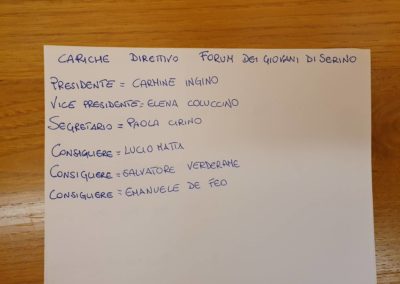 CARICHE DIRETTIVO FORUM DEI GIOVANI DI SERINO
PRESIDENTE = CARMINE INGINO
VICE PRESIDENTE = ELENA COLUCCINO
SEGRETARIO = PAOLA CIRINO
CONSIGLIERE = LUCIO MATTA
CONSIGLIERE = SALVATORE VERDERAME
CONSIGLIERE = EMANUELE DE FEO